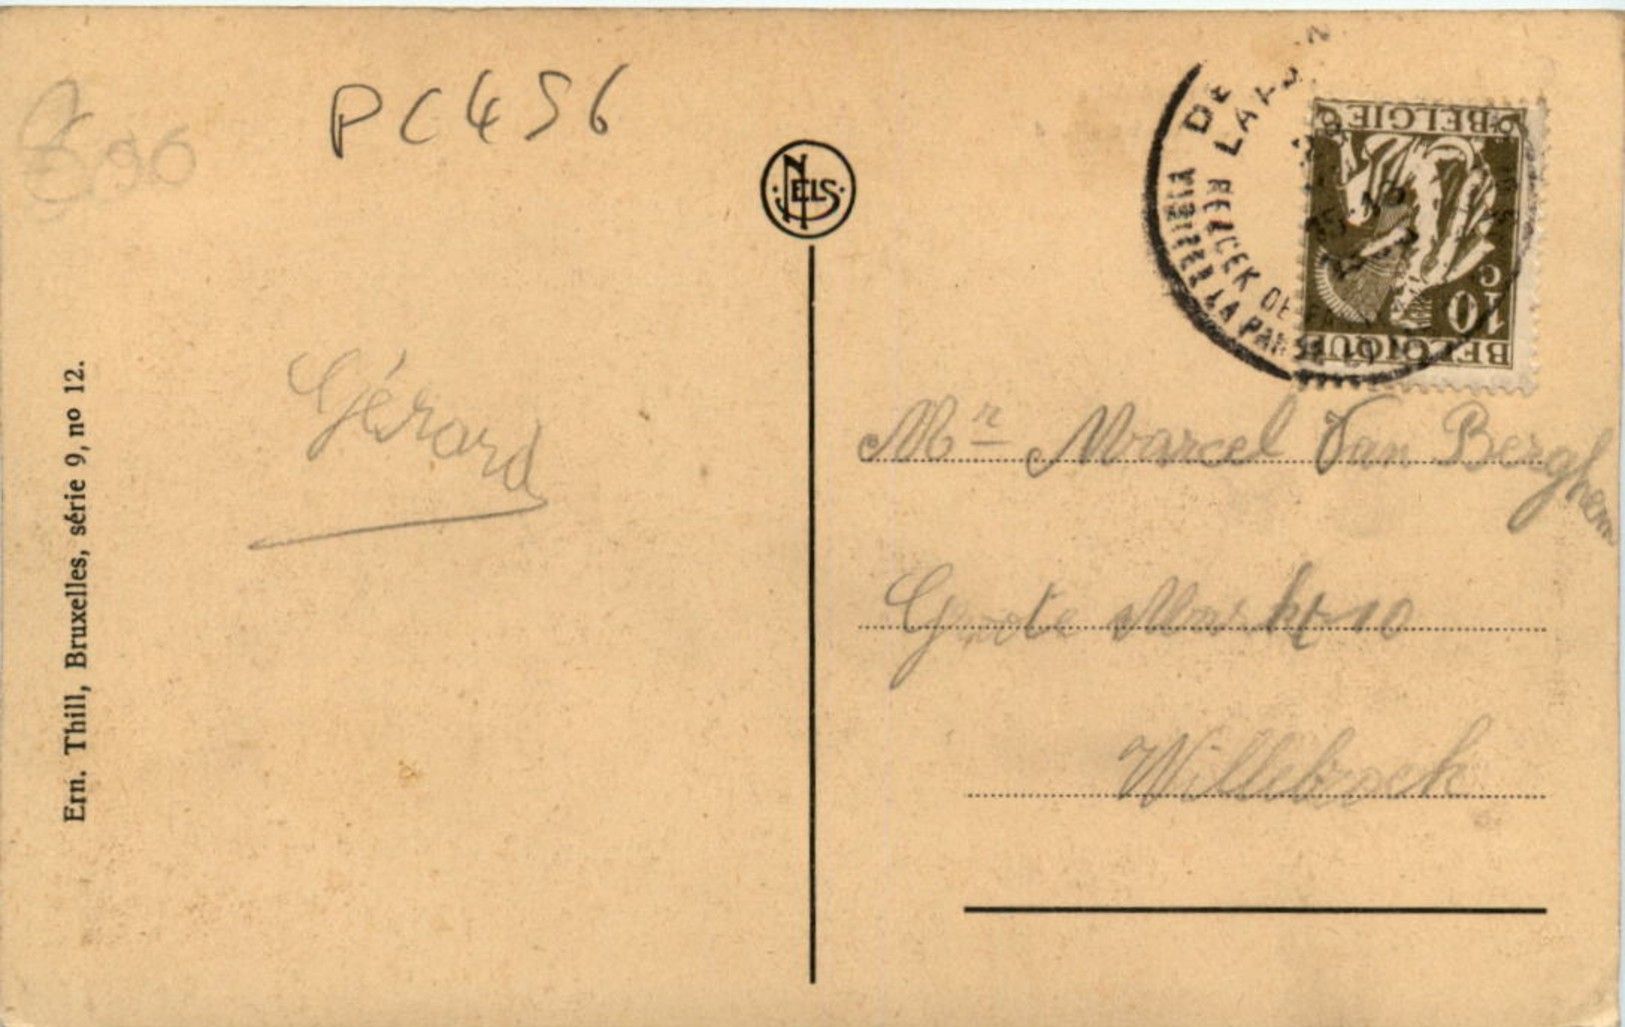 PC456
NELS
DE
LA
BEZOEK DE
VISITEZ LA PANNE
BELGIE
10 C
BELGIQUE
Ern. Thill, Bruxelles, série 9, no 12.
Gérard
Mr Marcel Van Berghem
Groote Markt 10
Willebroek